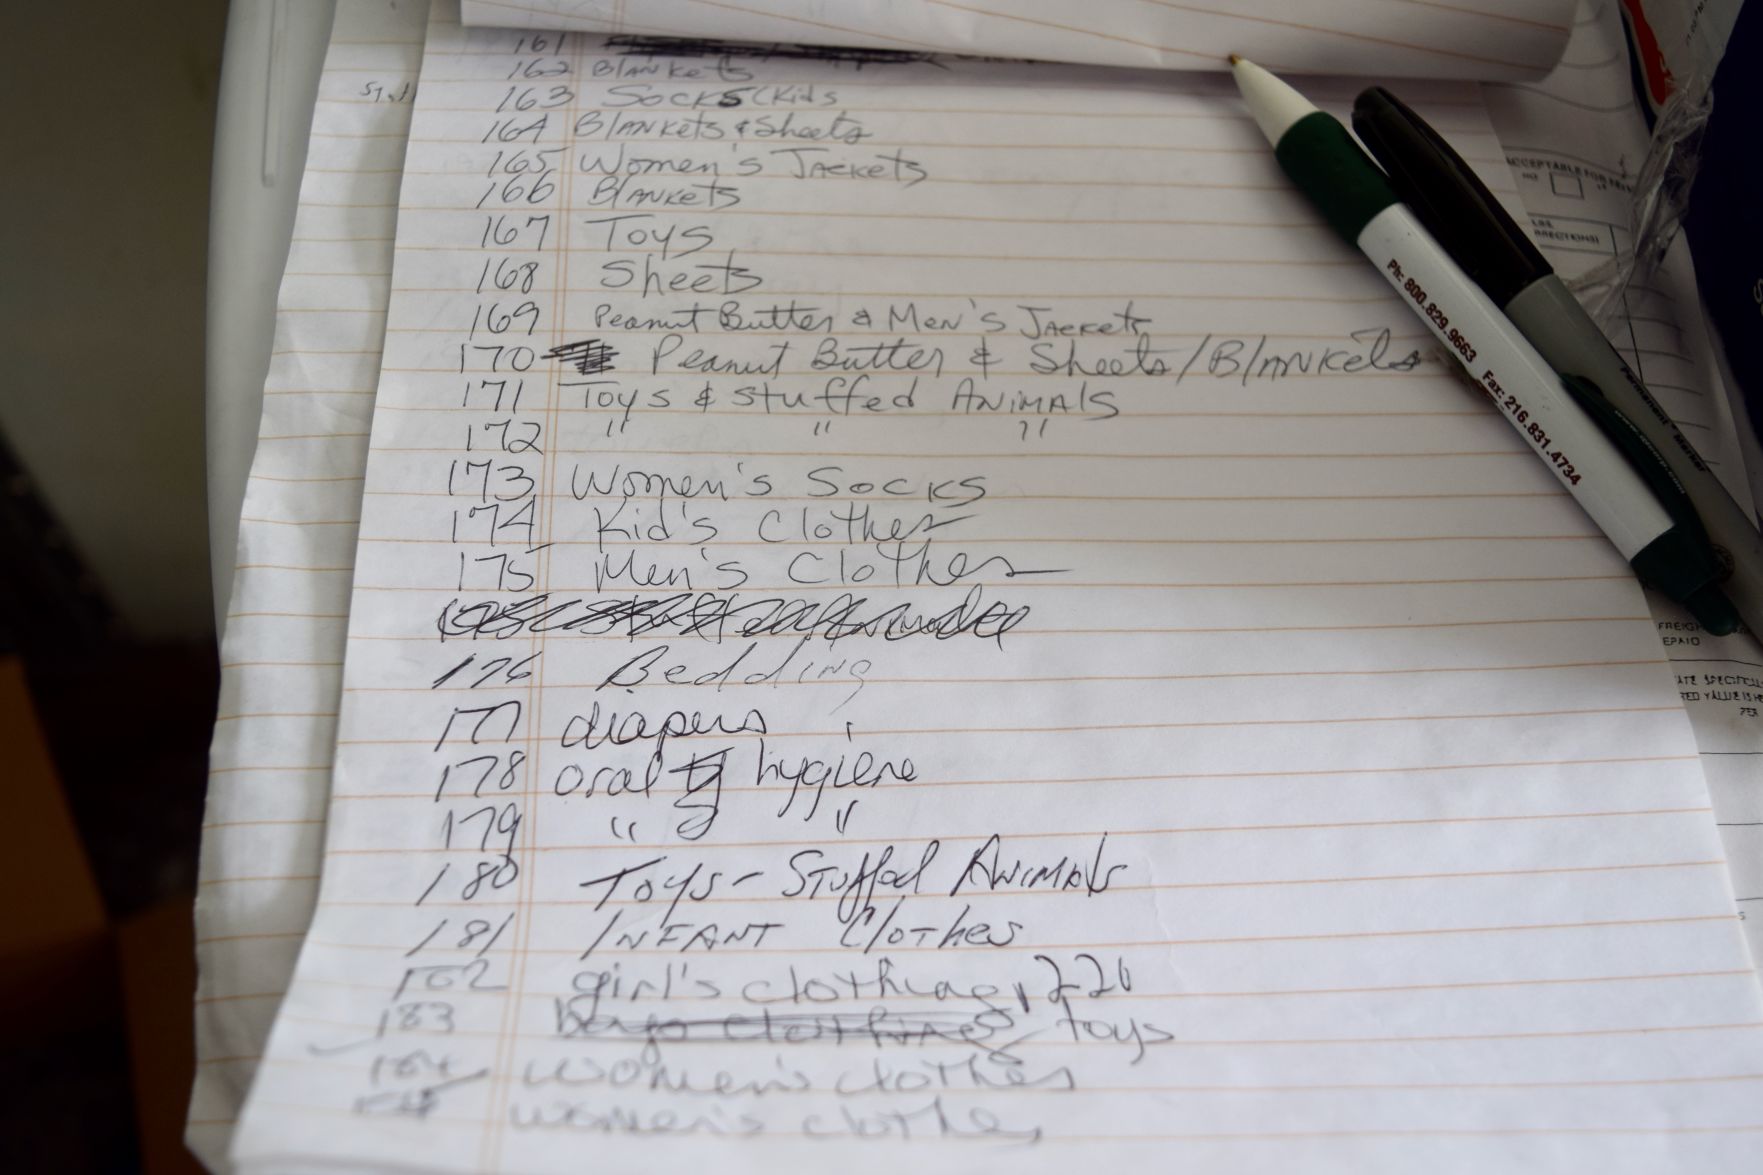 161
162 Blankets
163 Socks (Kids
164 Blankets & Sheets
165 Women's Jackets
166 Blankets
167 Toys
168 Sheets
169 Peanut Butter & Men's Jackets
170 Peanut Butter & Sheets/Blankets
171 Toys & Stuffed Animals
172 " " "
173 Women's Socks
174 Kid's Clothes
175 Men's Clothes
176 Bedding
177 diapers
178 oral hygiene
179 " "
180 Toys - Stuffed Animals
181 INFANT Clothes
182 girl's clothing, 220
183 boys clothing toys
184 women's clothes
women's clothes
Ph: 800.829.9663 Fax: 216.831.4734
Permanent Marker
ACCEPTABLE FOR
NO